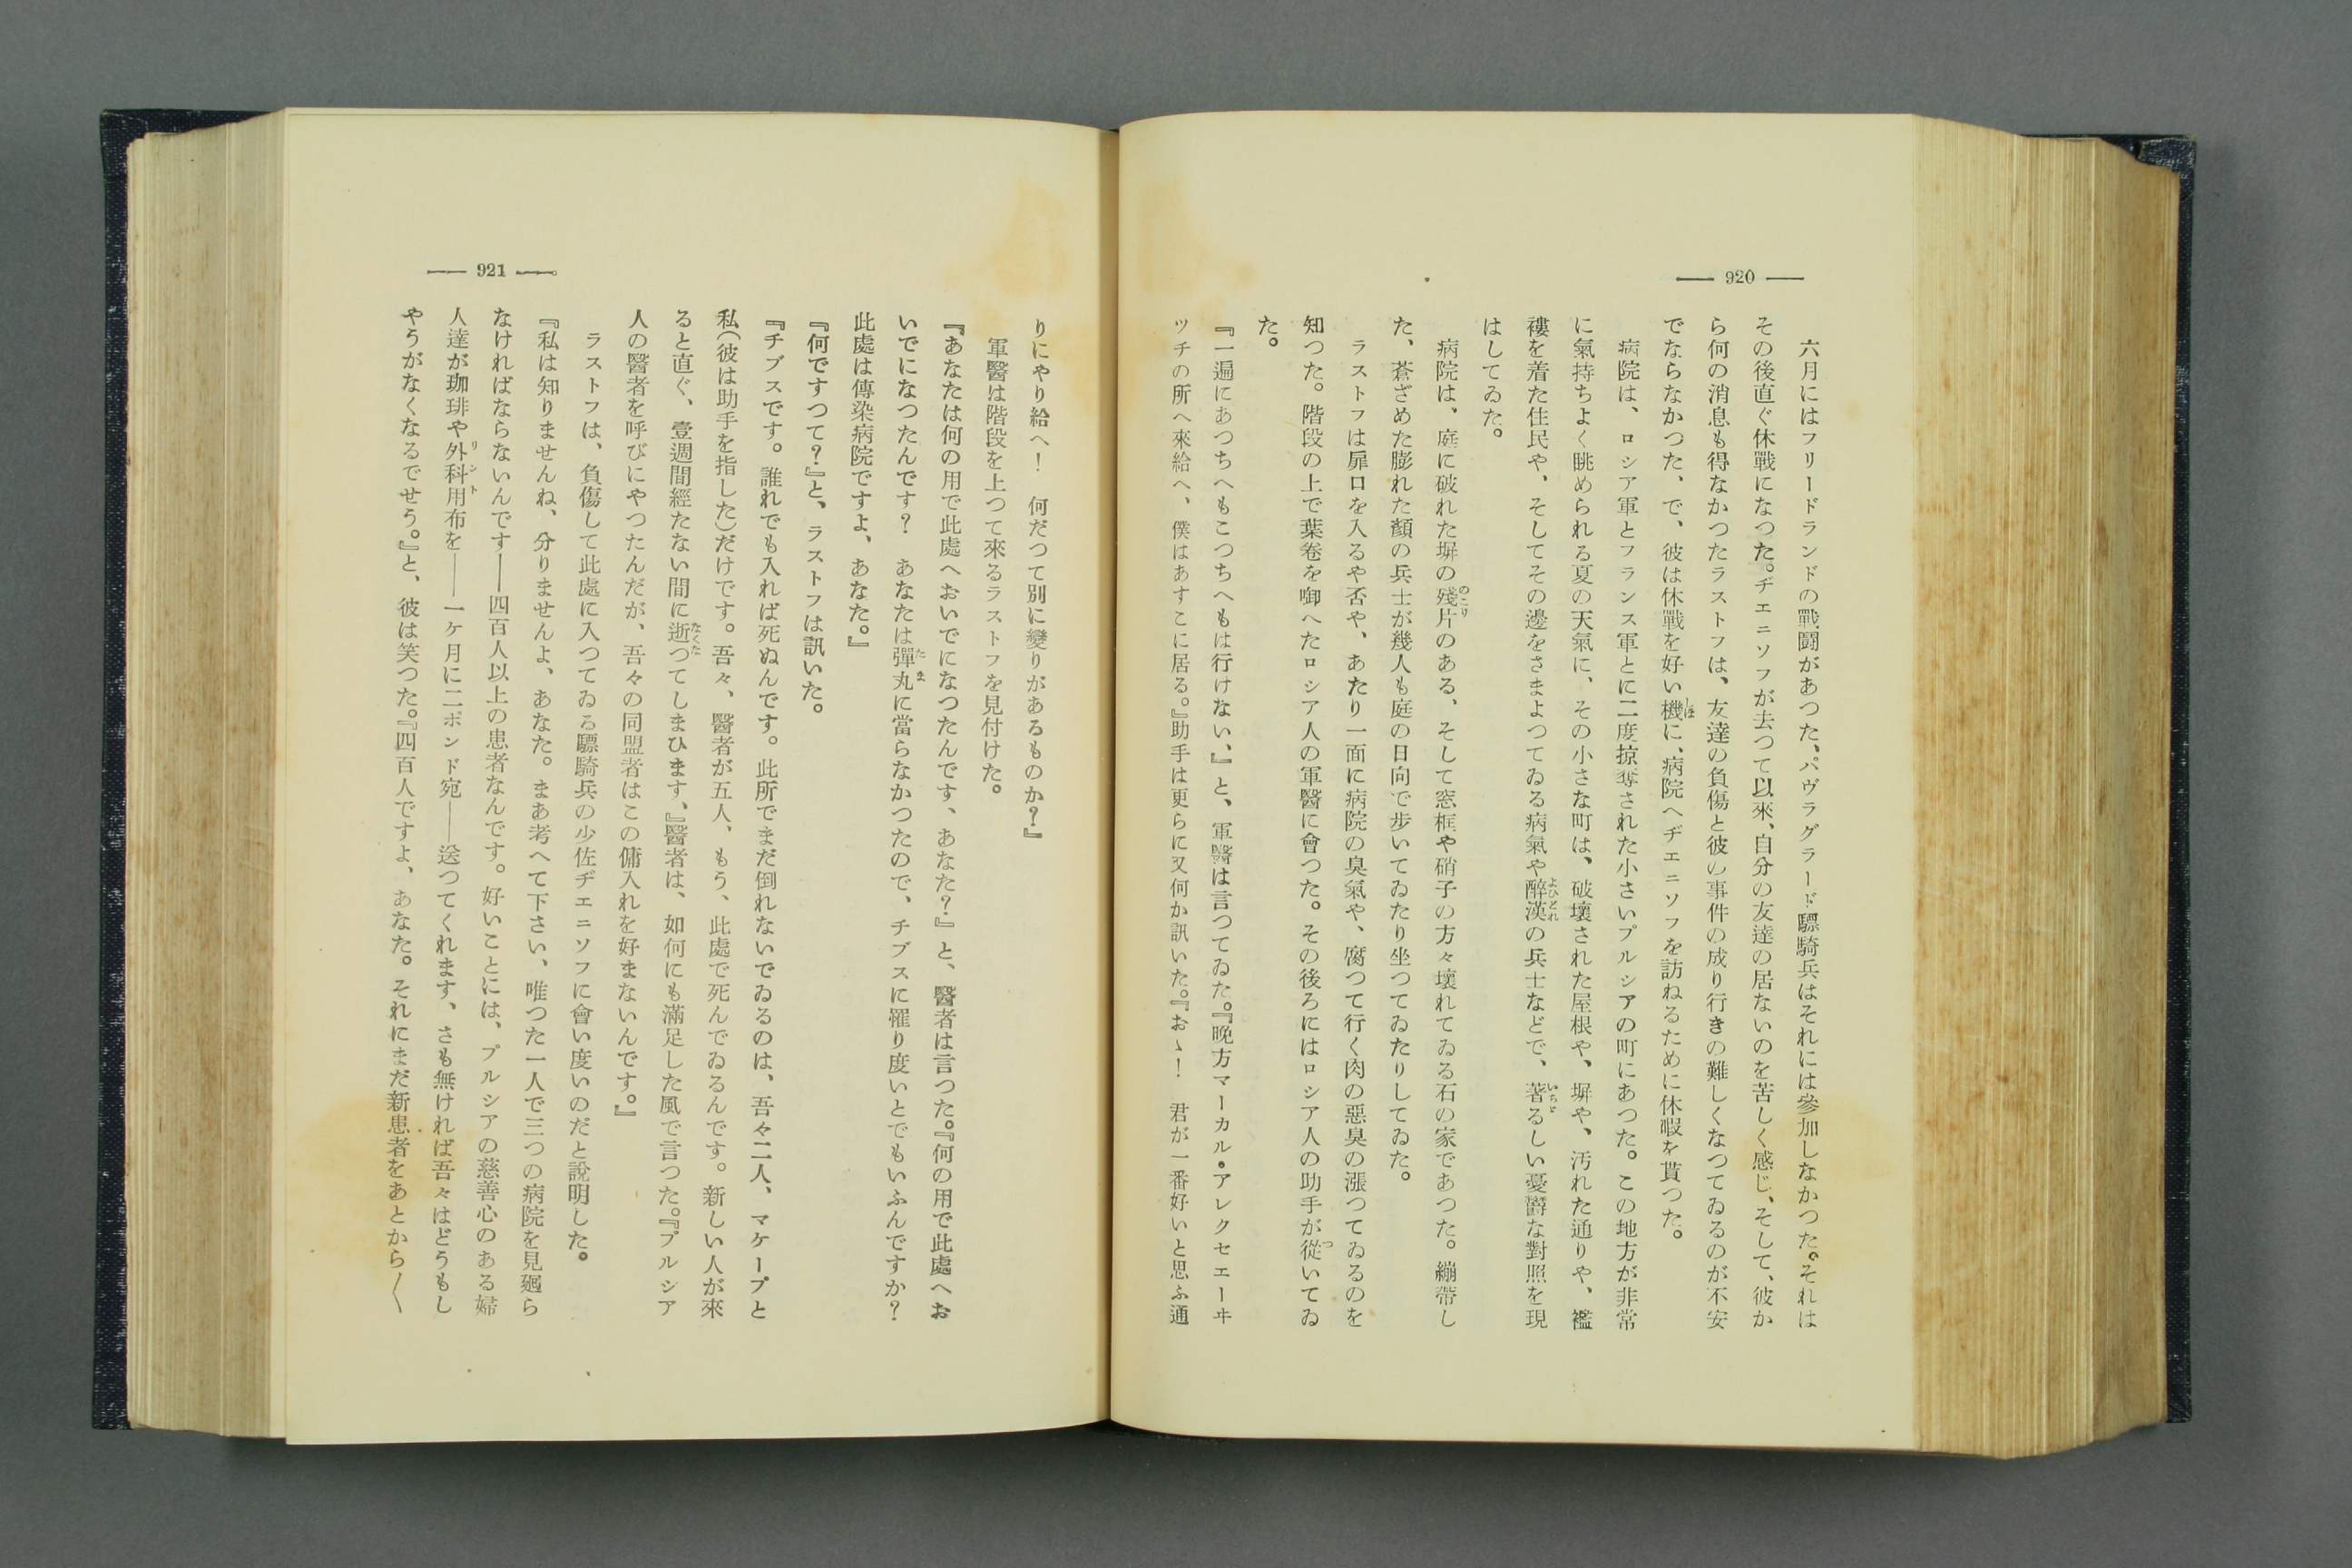 920
六月にはフリードランドの戰鬪があつた、パヴラグラード驃騎兵はそれには參加しなかつた。それは
その後直ぐ休戰になつた。ヂエニソフが去つて以來、自分の友達の居ないのを苦しく感じ、そして、彼か
ら何の消息も得なかつたラストフは、友達の負傷と彼の事件の成り行きの難しくなつてゐるのが不安
でならなかつた、で、彼は休戰を好い機に、病院へヂエニソフを訪ねるために休暇を貰つた。
病院は、ロシア軍とフランス軍とに二度掠奪された小さいプルシアの町にあつた。この地方が非常
に氣持ちよく眺められる夏の天氣に、その小さな町は、破壞された屋根や、塀や、汚れた通りや、襤
褸を着た住民や、そしてその邊をさまよつてゐる病氣や醉漢の兵士などで、著るしい憂欝な對照を現
はしてゐた。
病院は、庭に破れた塀の殘片のある、そして窓框や硝子の方々壞れてゐる石の家であつた。繃帶し
た、蒼ざめた膨れた顏の兵士が幾人も庭の日向で步いてゐたり坐つてゐたりしてゐた。
ラストフは扉口を入るや否や、あたり一面に病院の臭氣や、腐つて行く肉の惡臭の漲つてゐるのを
知つた。階段の上で葉卷を啣へたロシア人の軍醫に會つた。その後ろにはロシア人の助手が從いてゐ
た。
『一遍にあつちへもこつちへもは行けない、』と、軍醫は言つてゐた。『晩方マーカル・アレクセエーヰ
ツチの所へ來給へ、僕はあすこに居る。』助手は更らに又何か訊いた。『おゝ！　君が一番好いと思ふ通
921
りにやり給へ！　何だつて別に變りがあるものか？』
軍醫は階段を上つて來るラストフを見付けた。
『あなたは何の用で此處へおいでになつたんです、あなた？』と、醫者は言つた。『何の用で此處へお
いでになつたんです？　あなたは彈丸に當らなかつたので、チブスに罹り度いとでもいふんですか？
此處は傳染病院ですよ、あなた。』
『何ですつて？』と、ラストフは訊いた。
『チブスです。誰れでも入れば死ぬんです。此所でまだ倒れないでゐるのは、吾々二人、マケーブと
私（彼は助手を指した）だけです。吾々、醫者が五人、もう、此處で死んでゐるんです。新しい人が來
ると直ぐ、壹週間經たない間に逝つてしまひます、』醫者は、如何にも滿足した風で言つた。『プルシア
人の醫者を呼びにやつたんだが、吾々の同盟者はこの傭入れを好まないんです。』
ラストフは、負傷して此處に入つてゐる驃騎兵の少佐ヂエニソフに會い度いのだと說明した。
『私は知りませんね、分りませんよ、あなた。まあ考へて下さい、唯つた一人で三つの病院を見廻ら
なければならないんです――四百人以上の患者なんです。好いことには、プルシアの慈善心のある婦
人達が珈琲や外科用布を――一ケ月に二ポンド宛――送つてくれます、さも無ければ吾々はどうもし
やうがなくなるでせう。』と、彼は笑つた。『四百人ですよ、あなた。それにまだ新患者をあとから〱